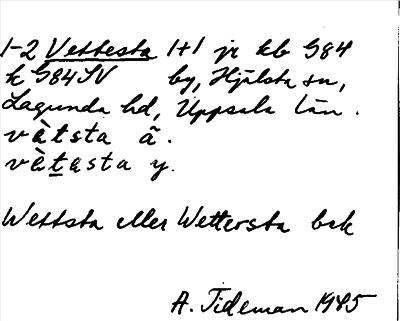 1-2 Vettesta 1+1 jr kb G84
k G84SV by, Hjälsta sn,
Lagunda hd, Uppsala län.
vètsta ã.
vètesta y.
Wettsta eller Wettersta bek
A. Tideman 1945